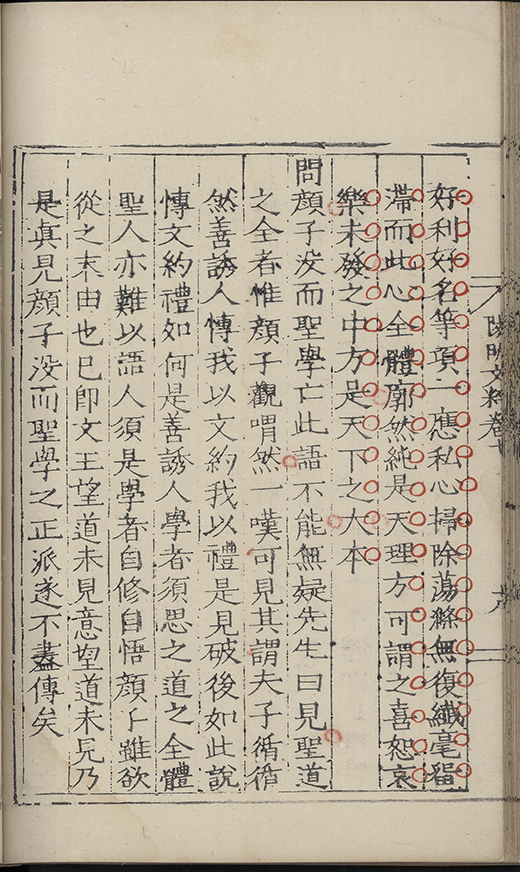 好利好名等項一應私心掃除蕩滌無復纖毫留
滯而此心全體廓然純是天理方可謂之喜怒哀
樂未發之中方是天下之大本
問顔子没而聖學亡此語不能無疑先生曰見聖道
之全者惟顔子觀喟然一嘆可見其謂夫子循循
然善誘人博我以文約我以禮是見破後如此說
博文約禮如何是善誘人學者須思之道之全體
聖人亦難以語人須是學者自修自悟顔子雖欲
從之末由也已卽文王望道未見意望道未見乃
是真見顔子没而聖學之正派遂不盡傳矣
陽明文粹卷